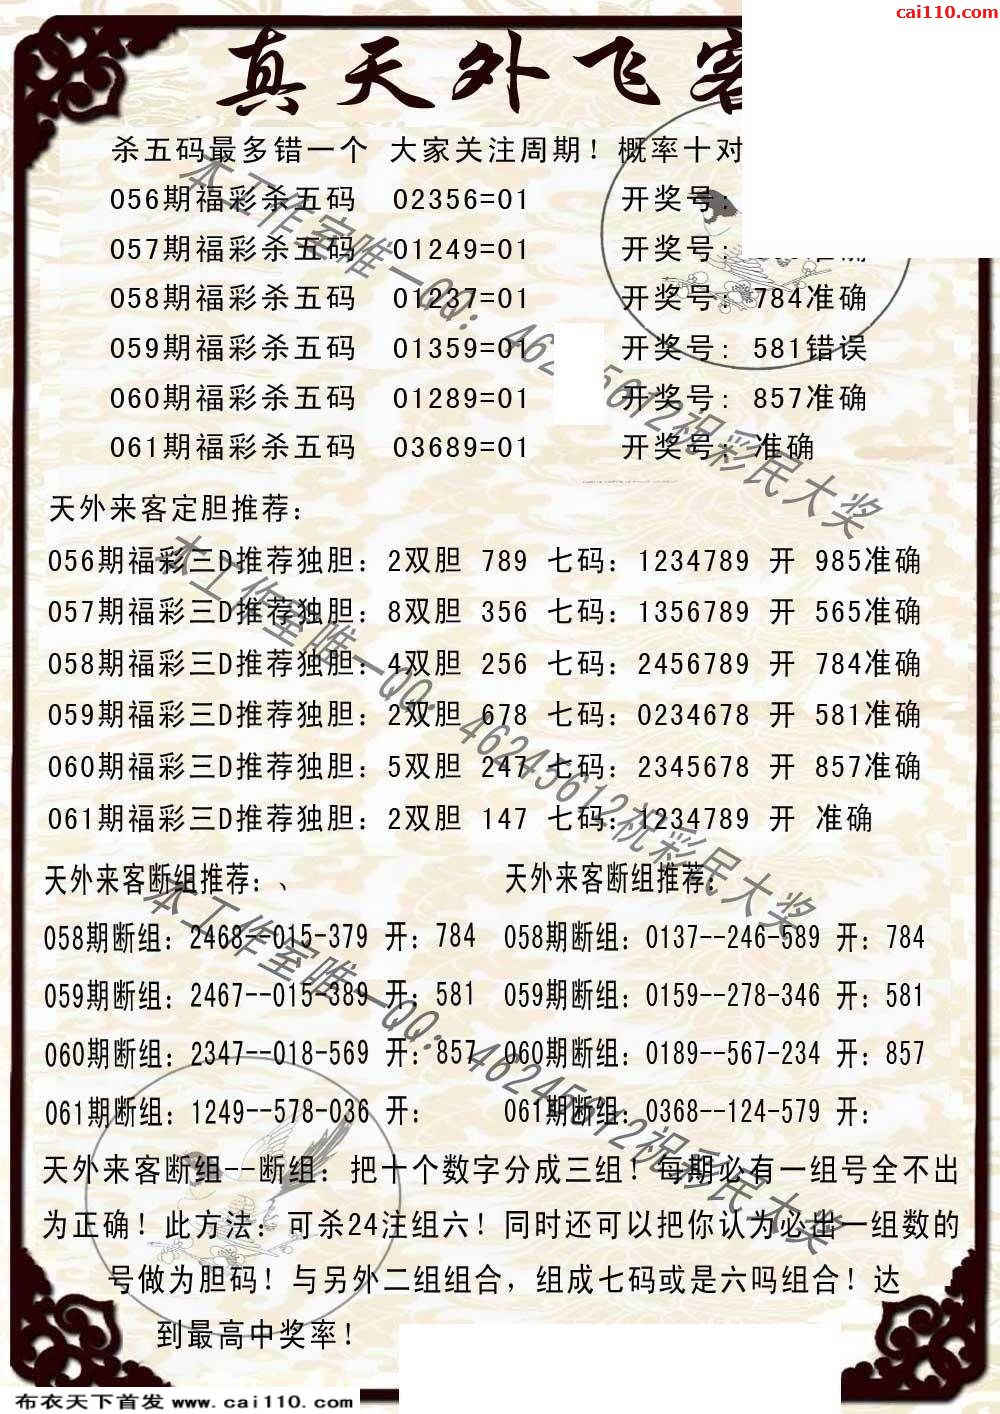 cai110.com
真天外飞客
杀五码最多错一个 大家关注周期！概率十对
056期福彩杀五码 02356=01 开奖号:
057期福彩杀五码 01249=01 开奖号: 准确
058期福彩杀五码 01237=01 开奖号: 784准确
059期福彩杀五码 01359=01 开奖号: 581错误
060期福彩杀五码 01289=01 开奖号: 857准确
061期福彩杀五码 03689=01 开奖号: 准确
天外来客定胆推荐:
056期福彩三D推荐独胆: 2双胆 789 七码: 1234789 开 985准确
057期福彩三D推荐独胆: 8双胆 356 七码: 1356789 开 565准确
058期福彩三D推荐独胆: 4双胆 256 七码: 2456789 开 784准确
059期福彩三D推荐独胆: 2双胆 678 七码: 0234678 开 581准确
060期福彩三D推荐独胆: 5双胆 247 七码: 2345678 开 857准确
061期福彩三D推荐独胆: 2双胆 147 七码: 1234789 开 准确
天外来客断组推荐:、 天外来客断组推荐:
058期断组: 2468--015-379 开: 784 058期断组: 0137--246-589 开: 784
059期断组: 2467--015-389 开: 581 059期断组: 0159--278-346 开: 581
060期断组: 2347--018-569 开: 857 060期断组: 0189--567-234 开: 857
061期断组: 1249--578-036 开: 061期断组: 0368--124-579 开:
天外来客断组--断组: 把十个数字分成三组！每期必有一组号全不出
为正确！此方法: 可杀24注组六！同时还可以把你认为必出一组数的
号做为胆码！与另外二组组合，组成七码或是六吗组合！达
到最高中奖率！
本工作室唯一QQ: 462 5612祝彩民大奖
本工作室唯一QQ: 46245612祝彩民大奖
本工作室唯一QQ: 46245612祝彩民大奖
布衣天下首发 www.cai110.com